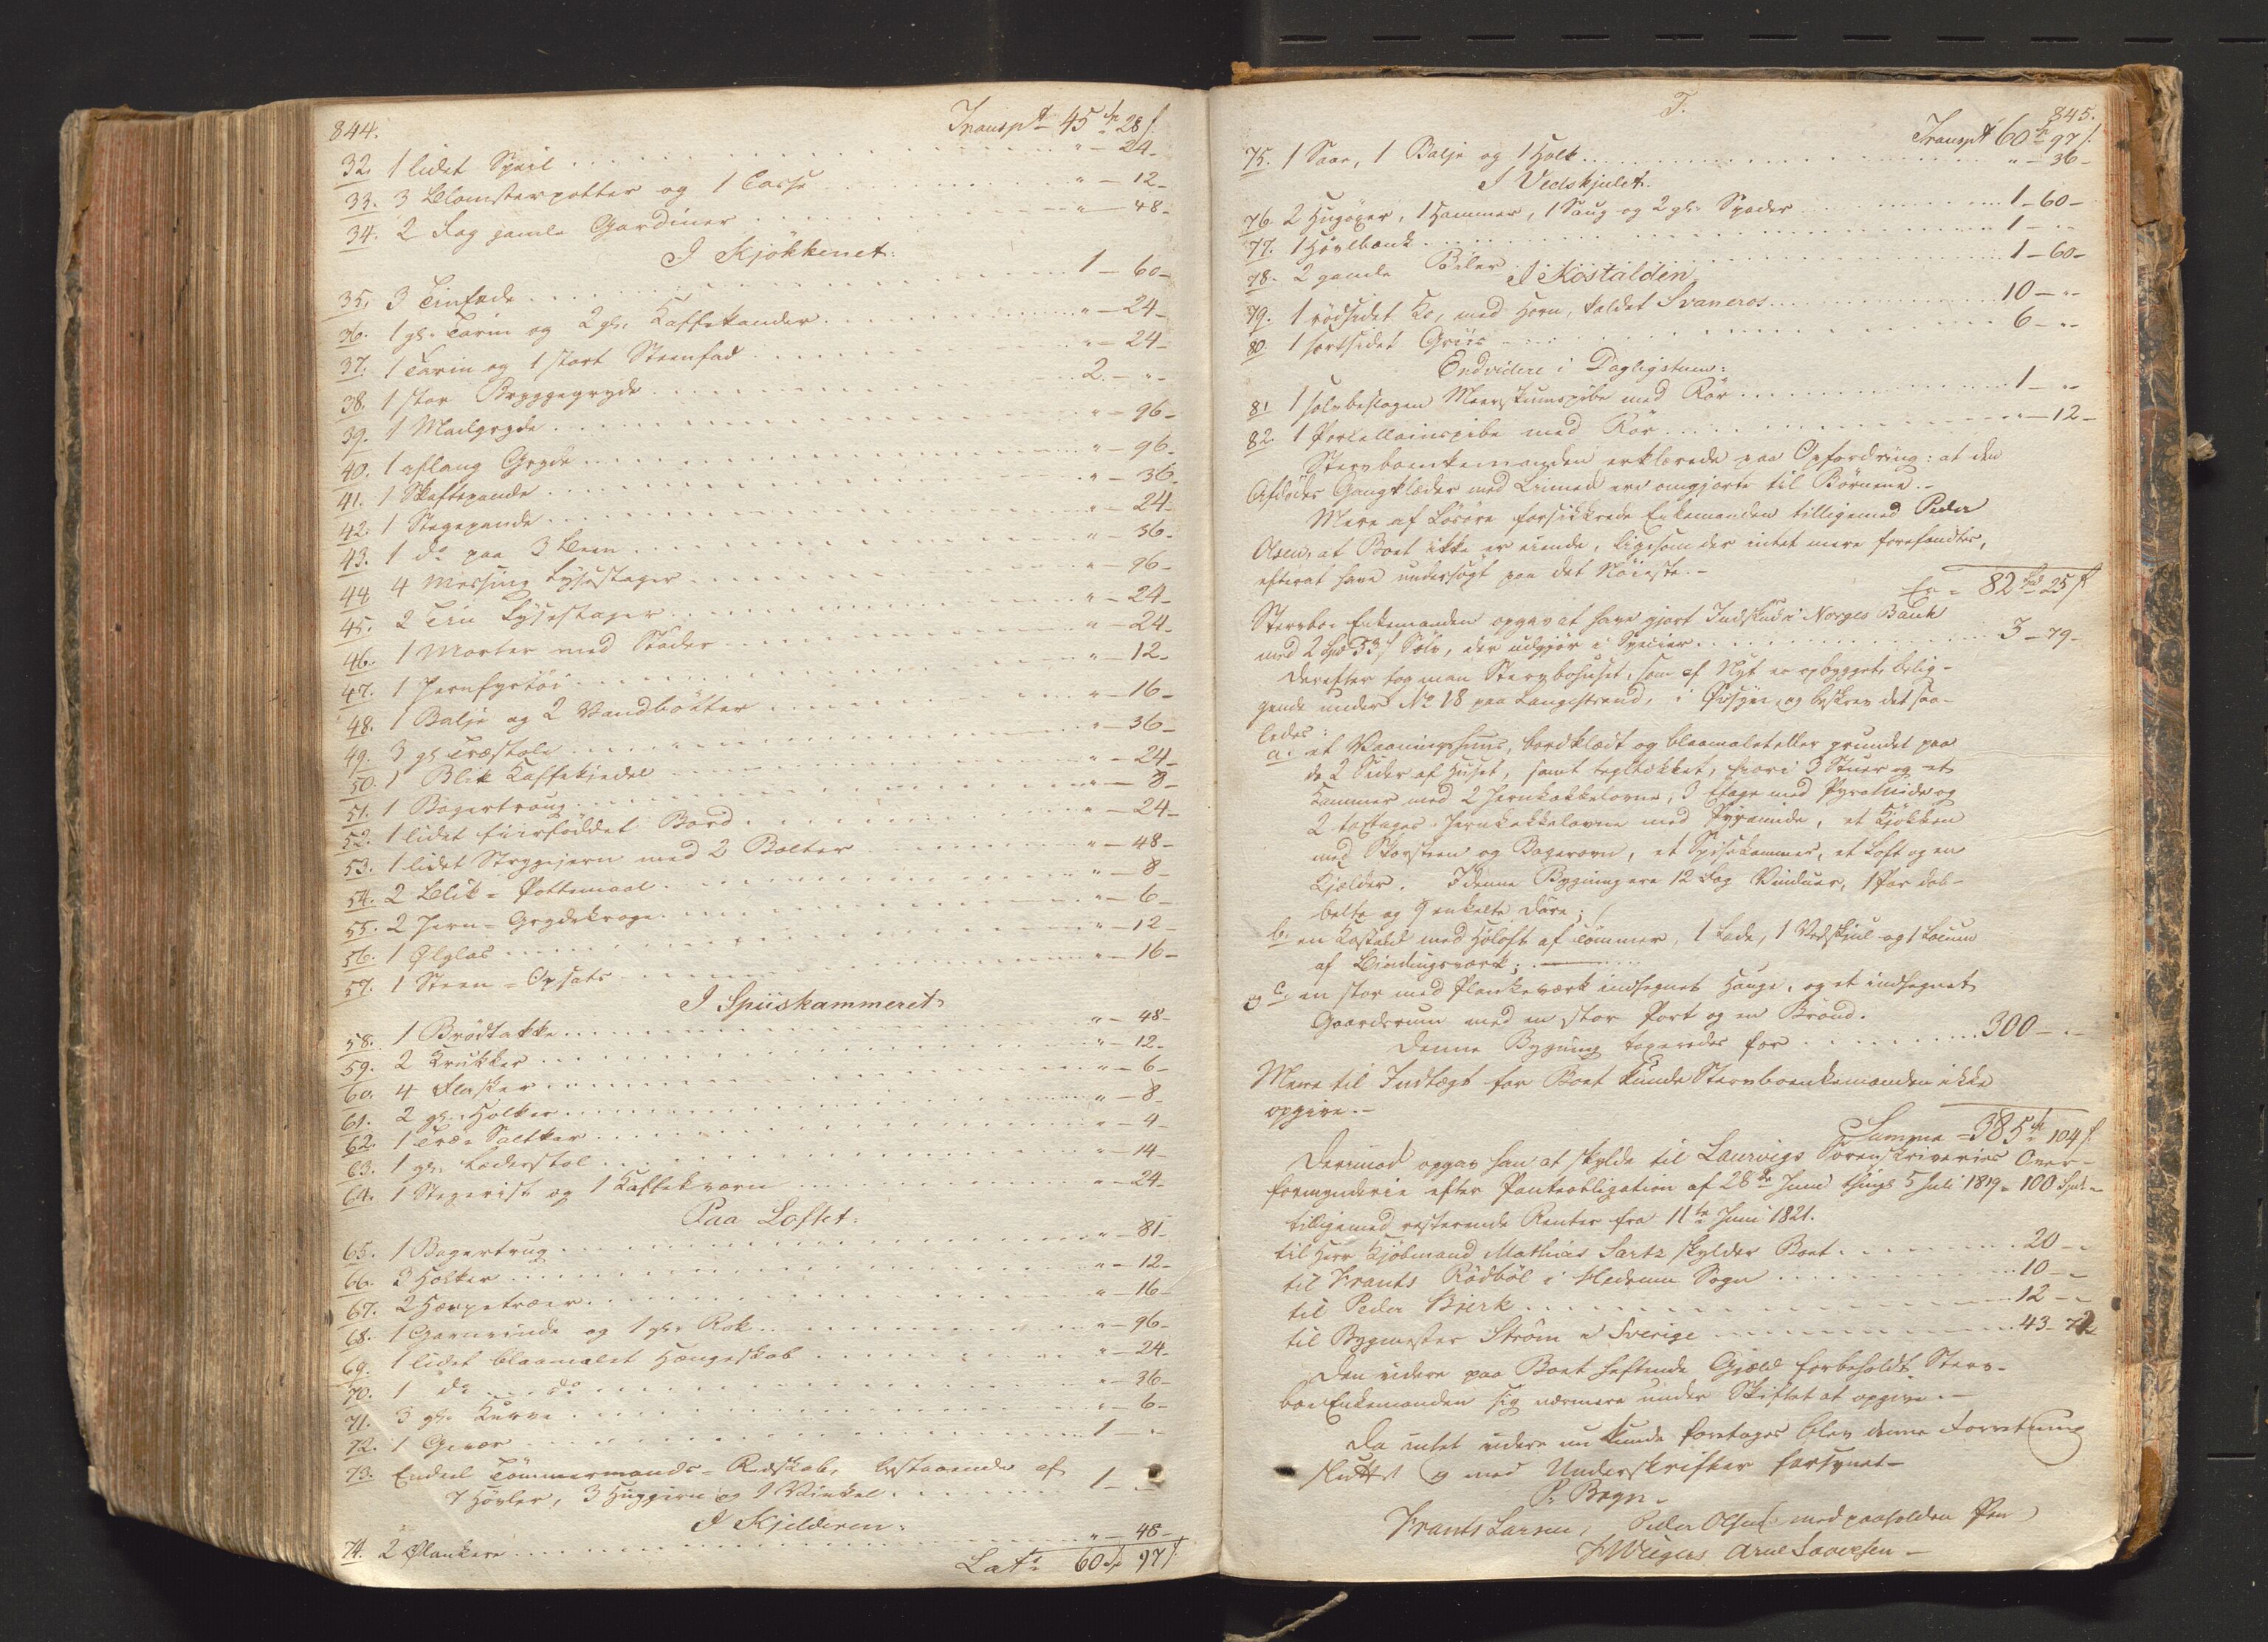 844.
Transpt 45 Sp 28 s.
32. 1 lidet Speil " - 24 -
33. 3 Blomsterpotter og 1 Casse " - 12 -
34. 2 Fag gamle Gardiner " - 48 -
I Kjökkenet:
35. 3 Tinfade 1 - 60 -
36. 1 gl. Terin og 2 gl. Kaffekander " - 24 -
37. 1 Terin og 1 stort Steenfad " - 24 -
38. 1 stor Bryggegryde 2 - " -
39. 1 Madgryde " - 96 -
40. 1 aflang Gryde " - 96 -
41. 1 Skaftepande " - 36 -
42. 1 Stegepande " - 24 -
43. 1 do paa 3 Been " - 36 -
44 4 Messing Lysestager " - 96 -
45. 2 Tin Lysestager " - 24 -
46. 1 Morter med Stöder " - 24 -
47. 1 Jernfyrtöi " - 12 -
48. 1 Balje og 2 Vandbötter " - 16 -
49. 3 gl. Træstole " - 36 -
50. 1 Blik Kaffekiedel " - 24 -
51. 1 Bagertroug " - 8 -
52. 1 lidet fiirföddet Bord " - 24 -
53. 1 lidet Strygejern med 2 Bolter " - 48 -
54. 2 Blik-Pottemaal " - 8 -
55. 2 Jern-Grydekroge " - 6 -
56. 1 Ölglas " - 12 -
57. 1 Steen-Opsats " - 16 -
I Spiiskammeret:
58. 1 Brödtakke " - 48 -
59. 2 Krukker " - 12 -
60. 4 Flasker " - 6 -
61. 2 gl. Holker " - 8 -
62. 1 Træ Saltkar " - 4 -
63. 1 gl. Læderstol " - 14 -
64. 1 Stegerist og 1 Kaffekværn " - 24 -
Paa Loftet:
65. 1 Bagertrug " - 81 -
66. 3 Holker " - 12 -
67. 2 Hærpetræer " - 16 -
68. 1 Garnvinde og 1 gl. Rok " - 96 -
69. 1 lidet blaamalet Hængeskab " - 24 -
70. 1 do do " - 36 -
71. 3 gl. Kurve " - 6 -
72. 1 Gevær 1 - " -
73. Endeel Tömmermands-Redskab, bestaaende af
7 Hövler, 3 Huggjern og 1 Vinkel 1 - " -
I Kjelderen:
74. 2 Plankere " - 48 -
Lats 60 Sp 97 s.
T.
845.
Transpt 60 Sp 97 s.
75. 1 Saae, 1 Balje og 1 Holk " - 36 -
I Vedskjulet:
76. 2 Hugöxer, 1 Hammer, 1 Saug og 2 gl. Spader 1 - 60 -
77. 1 Hövlbænk 1 - " -
78. 2 gamle Biler 1 - 60 -
I Kostalden
79. 1 rödsidet Ko, med Horn, kaldet Svaneros 10 - " -
80. 1 sortsidet Griis 6 - " -
Endvidere i Dagligstuen:
81 1 sölvbeslagen Meerskumspibe med Rör 1 - " -
82. 1 Porcellainspibe med Rör " - 12 -
Stervboenkemanden erklærede paa Opfordring: at den
Afdödes Gangklæder med Linned ere omgjorte til Börnene. -
Mere af Lösöre forsikkrede Enkemanden tilligemed Peder
Olsen, at Boet ikke er eiende, ligesom der intet mere forefandtes,
efterat have undersögt paa det Nöieste. -
Er = 82 Spd 25 s
Stervbo-Enkemanden opgav at have gjort Indskud i Norges Bank
med 2 Spd 33 s Sölv, der udgjör i Species 3 - 79 -
Derefter tog man Stervbohuset, som af Nyt er opbygget, belig-
gende under No 18 paa Langestrand, i Öiesyn, og beskrev det saa-
ledes:
a. et Vaaningshuus, bordklædt og blaamalet eller grundet paa
de 2 Sider af Huset, samt tegltækket, hvori 3 Stuer og et
Kammer med 2 Jernkakkelovne, 3 Etage med Pyramide og
2 toetages Jernkakkelovne med Pyramide, et Kjökken
med Skorsteen og Bagerovn, et Spisekammer, et Loft og en
Kjelder. I denne Bygning ere 12 Fag Vinduer, 1 Par dob-
belte og 9 enkelte Döre;
b. en Kostald med Höloft af Tömmer, 1 Lade, 1 Vedskjul og 1 Locum
af Bindingsværk;
og c. en stor med Plankeværk indhegnet Hauge, og et indhegnet
Gaardsrum med en stor Port og en Brönd.
Denne Bygning taxeredes for 300 - " -
Mere til Indtægt for Boet kunde Stervboenkemanden ikke
opgive. -
Summa = 385 Sp 104 s.
Derimod opgav han at skylde til Laurvigs Sorenskriveries Over-
formynderie efter Panteobligation af 28de Juni thingl. 5 Juli 1819 = 100 Spd. -
tilligemed resterende Renter fra 11te Juni 1821.
til Herr Kjöbmand Mathias Sartz skylder Boet 20 - "
til Frants Rödböl i Hedrum Sogn 10 - "
til Peder Bjerk 12 - "
til Bygmester Ström i Sverige 43 - 72
Den videre paa Boet heftende Gjæld forbeholdt Sterv-
boe Enkemanden sig nærmere under Skiftet at opgive. -
Da intet videre nu kunde foretages blev denne Forretning
sluttet og med Underskrifter forsynet -
P. Bogn.
Frants Larsen, Peder Olsen med paaholden Pen
Arne Saavesen -